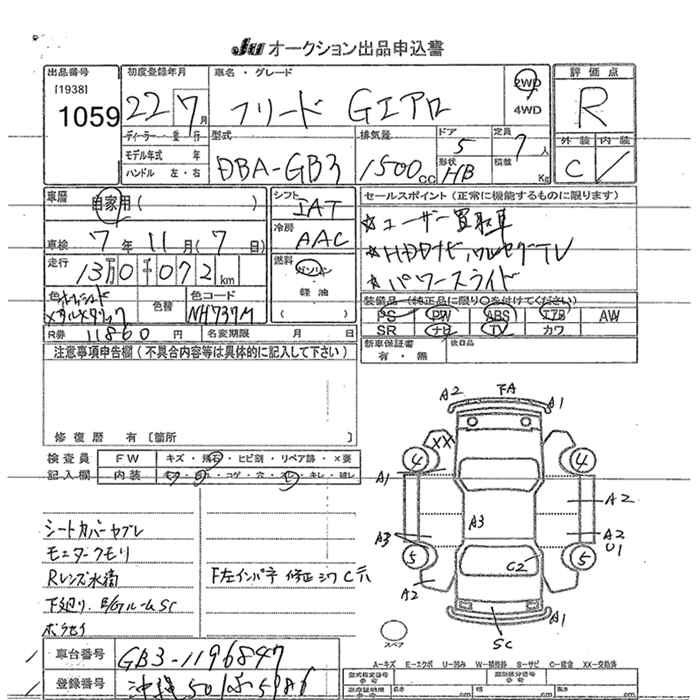 JU オークション出品申込書
出品番号 初度登録年月 車名・グレード 評価点
[1938]
1059 22 7月 フリード Gエアロ 2WD 4WD R
ディーラー・並行 型式 排気量 ドア 定員 外装 内装
モデル年式 年 DBA-GB3 1500cc 5 7人 C
ハンドル 左・右 形状 HB 積載 Kg
車歴 自家用( ) シフト IAT セールスポイント(正常に機能するものに限ります)
車検 7年 11月(7日) 冷房 AAC ☆ユーザー買取車
走行 13万0千072km 燃料 ガソリン ☆HDDナビ、ワンセグTV
軽油 ☆パワースライド
( )
色 色替 色コード NH737M 装備品(純正品に限り○を付けてください)
PS PW ABS エアB AW
SR ナビ TV カワ
R券 11860円 名変期限 月 日
注意事項申告欄(不具合内容等は具体的に記入して下さい) 新車保証書 有・無 後日品
修復歴 有〔箇所
検査員 FW キズ・飛石・ヒビ割・リペア跡・×要
記入欄 内装 コゲ・穴・キレ・破レ
A2 FA A1
XX
4 4
A1
A2
A3 A3 A2
U1
5 C2 5
A2
A1
SC
スペア
シートカバーヤブレ
モニタークモリ
Rレンズ水滴 F左インパネ修正シワC穴
下廻り、E/GルームSC
車台番号 GB3-1196847
登録番号 沖縄501
A-キズ E-エクボ U-凹み W-補修跡 S-サビ C-腐食 XX-交換済